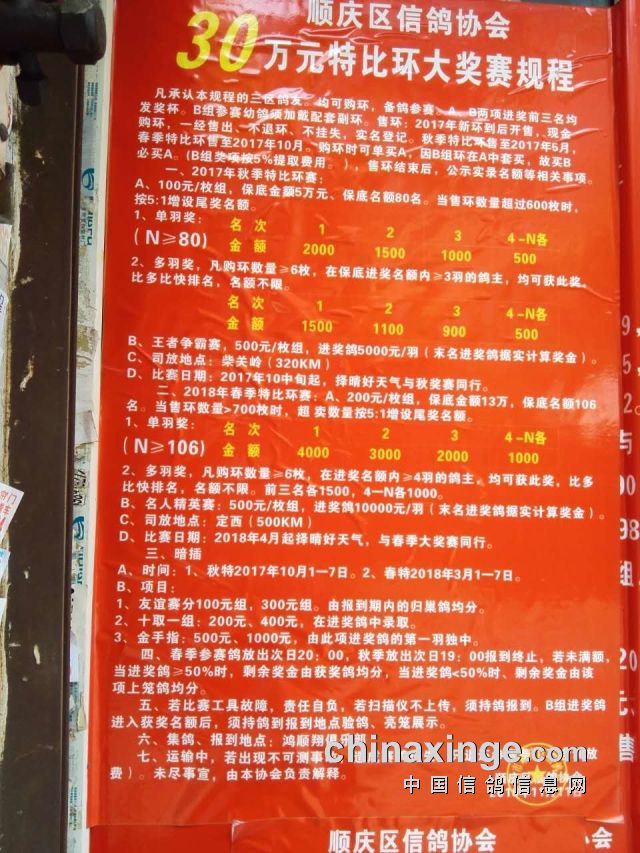 顺庆区信鸽协会
30万元特比环大奖赛规程
凡承认本规程的三区鸽友,均可购环,备鸽参赛,A、B两项进奖前三名均
发奖杯。B组参赛幼鸽须加戴配套副环。售环:2017年新环到后开售,现金
购环,一经售出、不退环、不挂失,实名登记。秋季特比环售至2017年5月,
春季特比环售至2017年10月。购环时可单买A,因B组环在A中套买,故买B
必买A。(B组奖项按5%提取费用。),售环结束后,公示实录名额等相关事项。
一、2017年秋季特比环赛:
A、100元/枚组,保底金额5万元、保底名额80名。当售环数量超过600枚时,
按5:1增设尾奖名额。
1、单羽奖:
(N≥80)
名 次 1 2 3 4-N各
金 额 2000 1500 1000 500
2、多羽奖,凡购环数量≥6枚,在保底进奖名额内≥3羽的鸽主,均可获此奖,
比多比快排名,名额不限。
名 次 1 2 3 4-N各
金 额 1500 1100 900 500
B、王者争霸赛,500元/枚组,进奖鸽5000元/羽(末名进奖鸽据实计算奖金)。
C、司放地点:柴关岭(320KM)
D、比赛日期:2017年10中旬起,择晴好天气与秋奖赛同行。
二、2018年春季特比环赛:A、200元/枚组,保底金额13万,保底名额106
名。当售环数量>700枚时,超卖数量按5:1增设尾奖名额。
1、单羽奖:
(N≥106)
名 次 1 2 3 4-N各
金 额 4000 3000 2000 1000
2、多羽奖,凡购环数量≥6枚,在进奖名额内≥4羽的鸽主,均可获此奖,比多
比快排名,名额不限。前三名各1500,4一N各1000。
B、名人精英赛:500元/枚组,进奖鸽10000元/羽(末名进奖鸽据实计算奖金)。
C、司放地点:定西(500KM)
D、比赛日期:2018年4月起择晴好天气,与春季大奖赛同行。
三、暗插
A、时间:1、秋特2017年10月1一7日。2、春特2018年3月1一7日。
B、项目:
1、友谊赛分100元组,300元组。由报到期内的归巢鸽均分。
2、十取一组:200元、400元,在进奖鸽中录取。
3、金手指:500元、1000元,由此项进奖鸽的第一羽独中。
四、春季参赛鸽放出次日20:00,秋季放出次日19:00报到终止,若未满额,
当进奖鸽≥50%时,剩余奖金由获奖鸽均分,当进奖鸽<50%时、剩余奖金由该
项上笼鸽均分。
五、若比赛工具故障,责任自负,若扫描仪不上传,须持鸽报到。B组进奖鸽
进入获奖名额后,须持鸽到报到地点验鸽、亮笼展示。
六、集鸽、报到地点:鸿顺翔俱乐部
七、运输中,若出现不可测事
费)。未尽事宜,由本协会负责解释。
chinaxinge.com
中国信鸽信息网
顺庆区信鸽协会